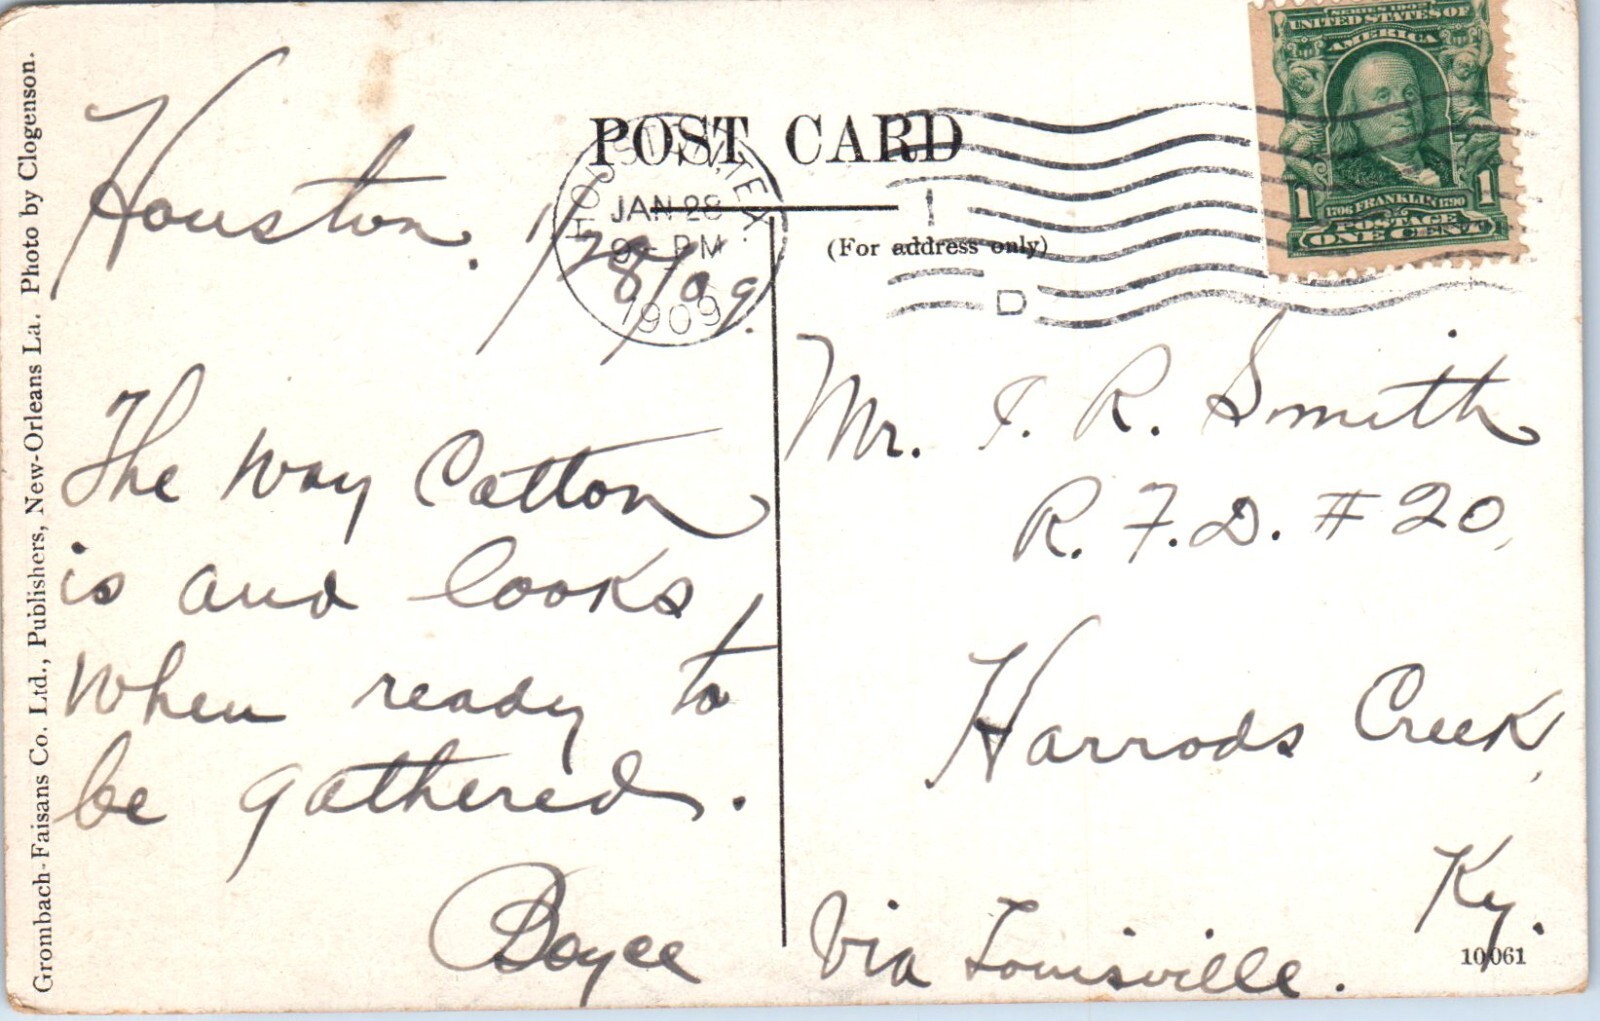 Grombach-Faisans Co. Ltd., Publishers, New-Orleans La. Photo by Clogenson.
POST CARD
(For address only)
HOUSTON, TEX.
JAN 28
9 - PM
1909
1
D
SERIES 1902
UNITED STATES OF
AMERICA
1706 FRANKLIN 1790
1 1
POSTAGE
ONE CENT
Houston. 1/28/09.
The way Cotton
is and looks
when ready to
be gathered.
Boyce
Mr. I. R. Smith
R. F. D. # 20,
Harrods Creek,
Ky.
Via Louisville.
10061